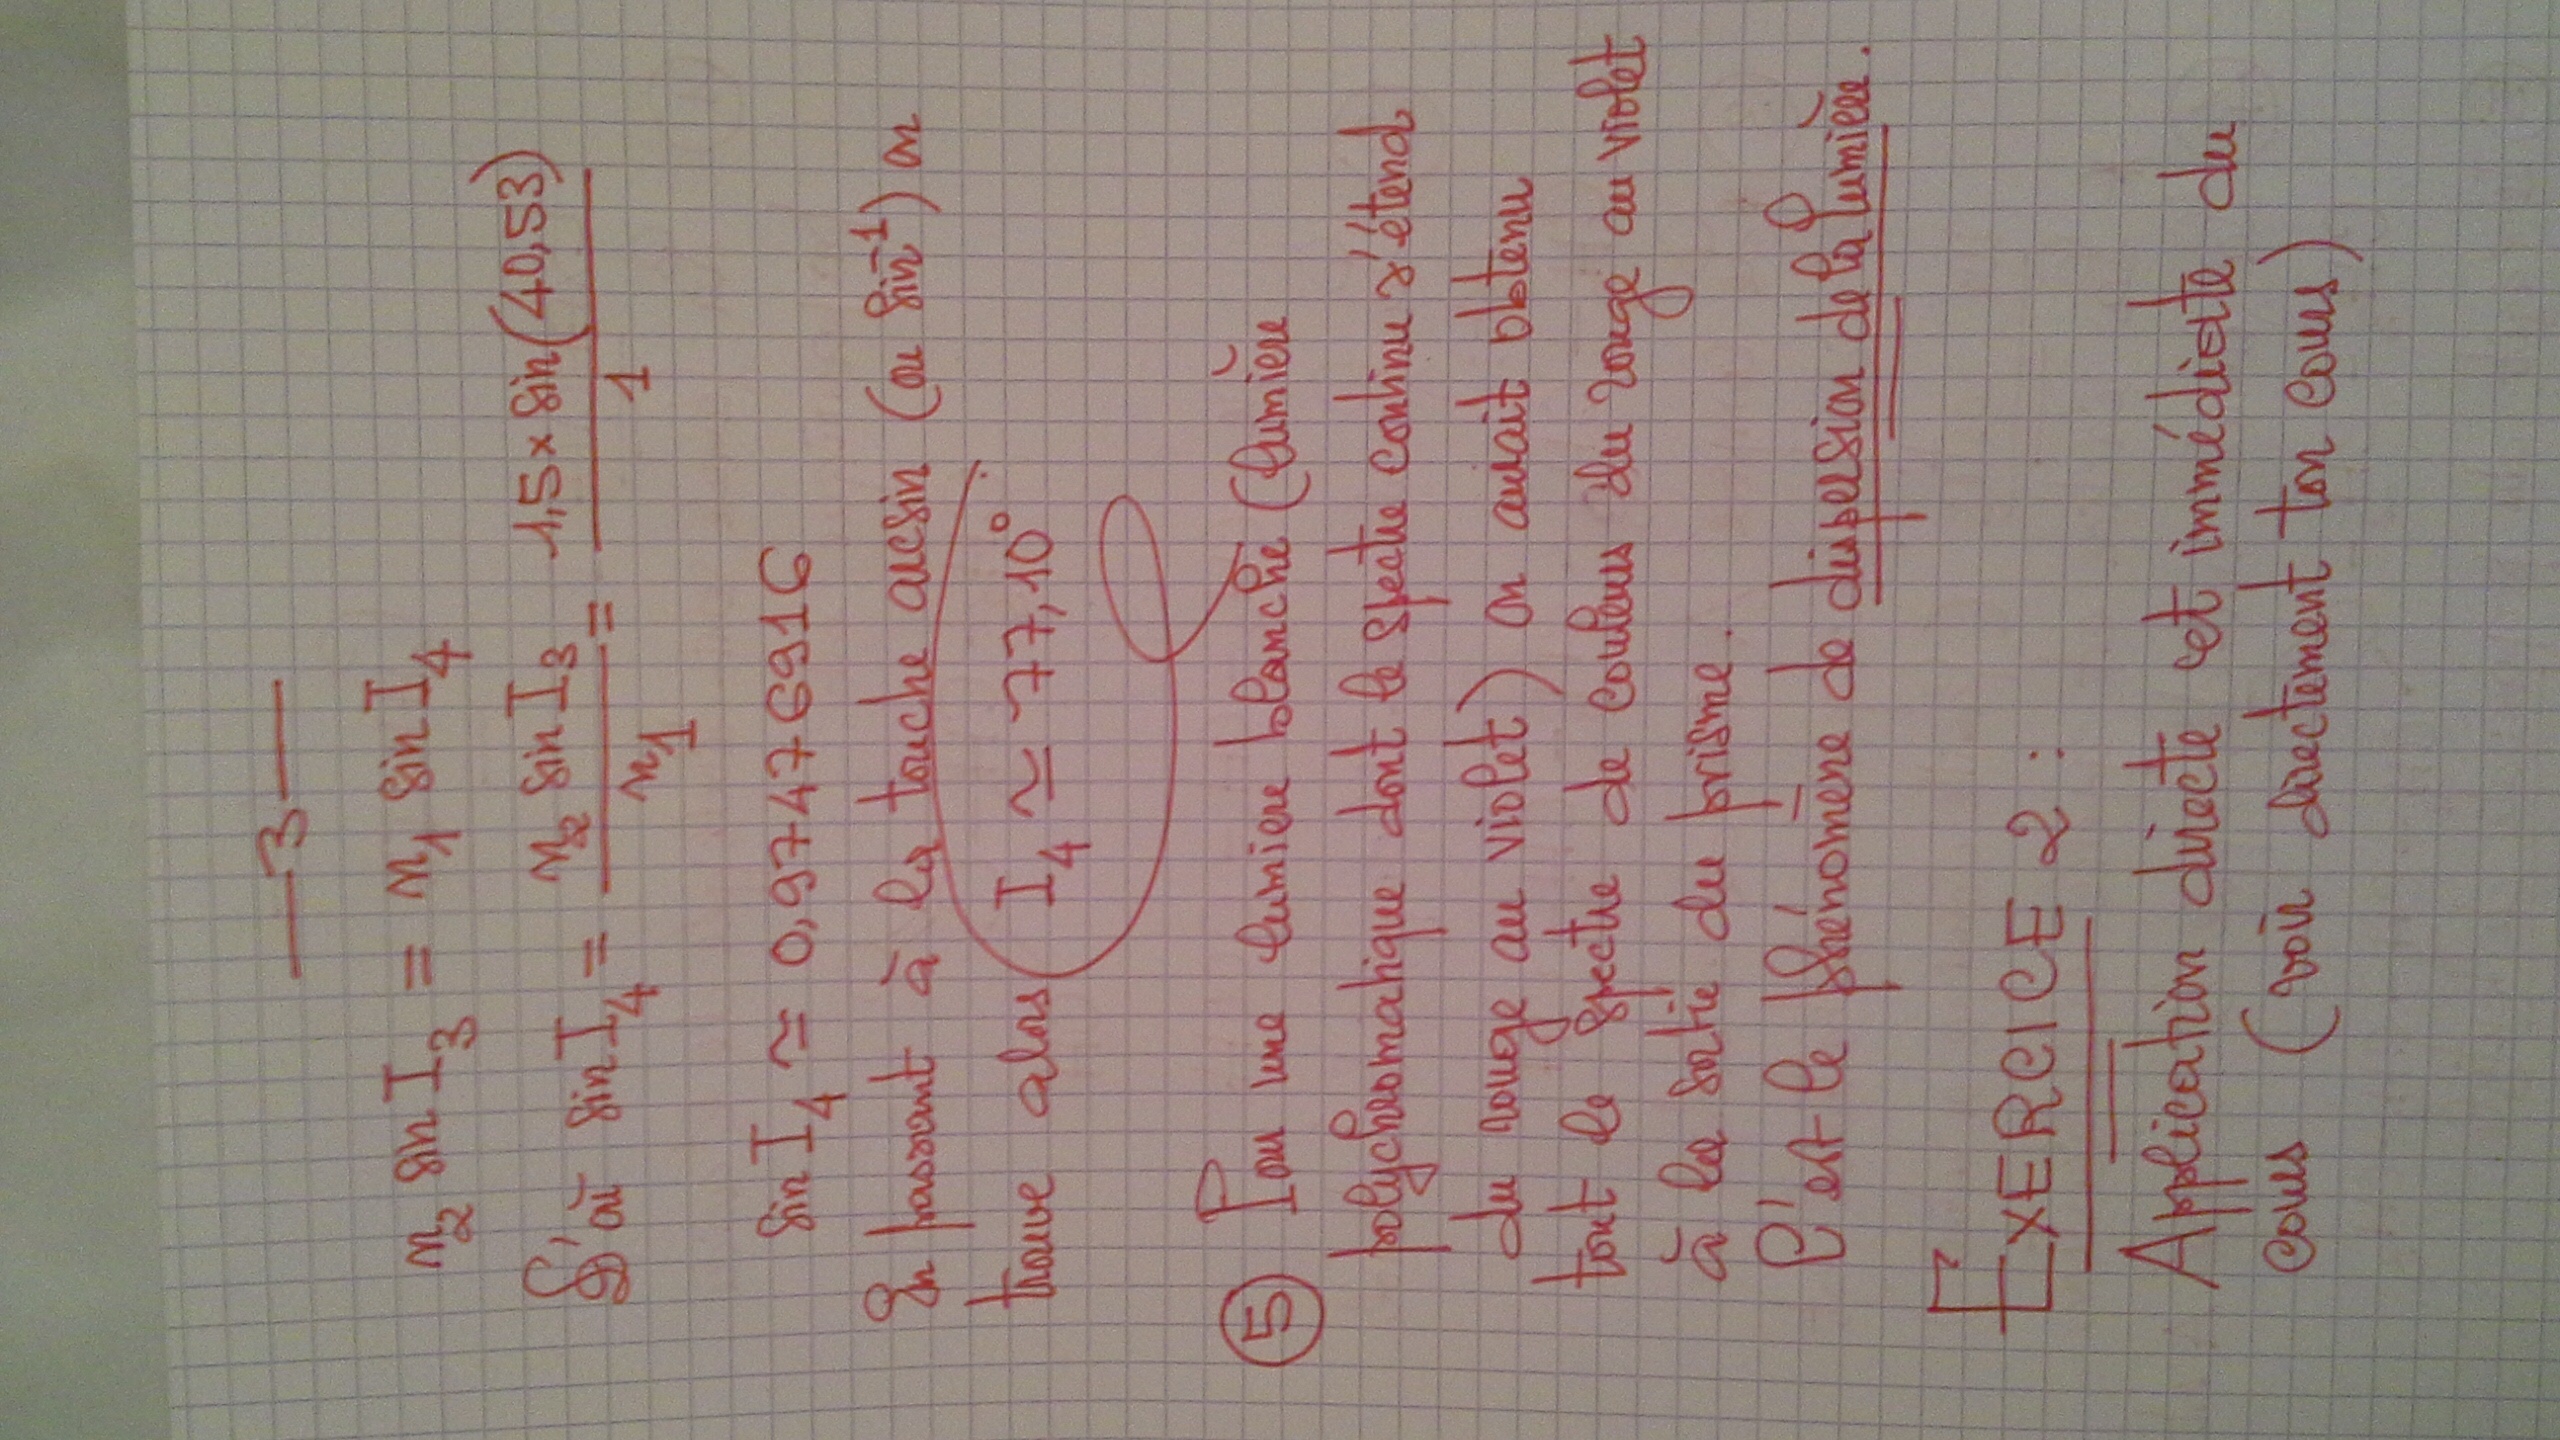 —3—
n2 sin I3 = n1 sin I4
D'où sin I4 = n2 sin I3 / n1 = 1,5 × sin(40,53) / 1
sin I4 ≃ 0,97476916
En passant à la touche arcsin (ou sin^-1) on
trouve alors I4 ≃ 77,10°
5 Pour une lumière blanche (lumière
polychromatique dont le spectre continu s'étend
du rouge au violet) on aurait obtenu
tout le spectre de couleurs du rouge au violet
à la sortie du prisme.
C'est le phénomène de dispersion de la lumière.
EXERCICE 2 :
Application directe et immédiate du
cours (voir directement ton cours)